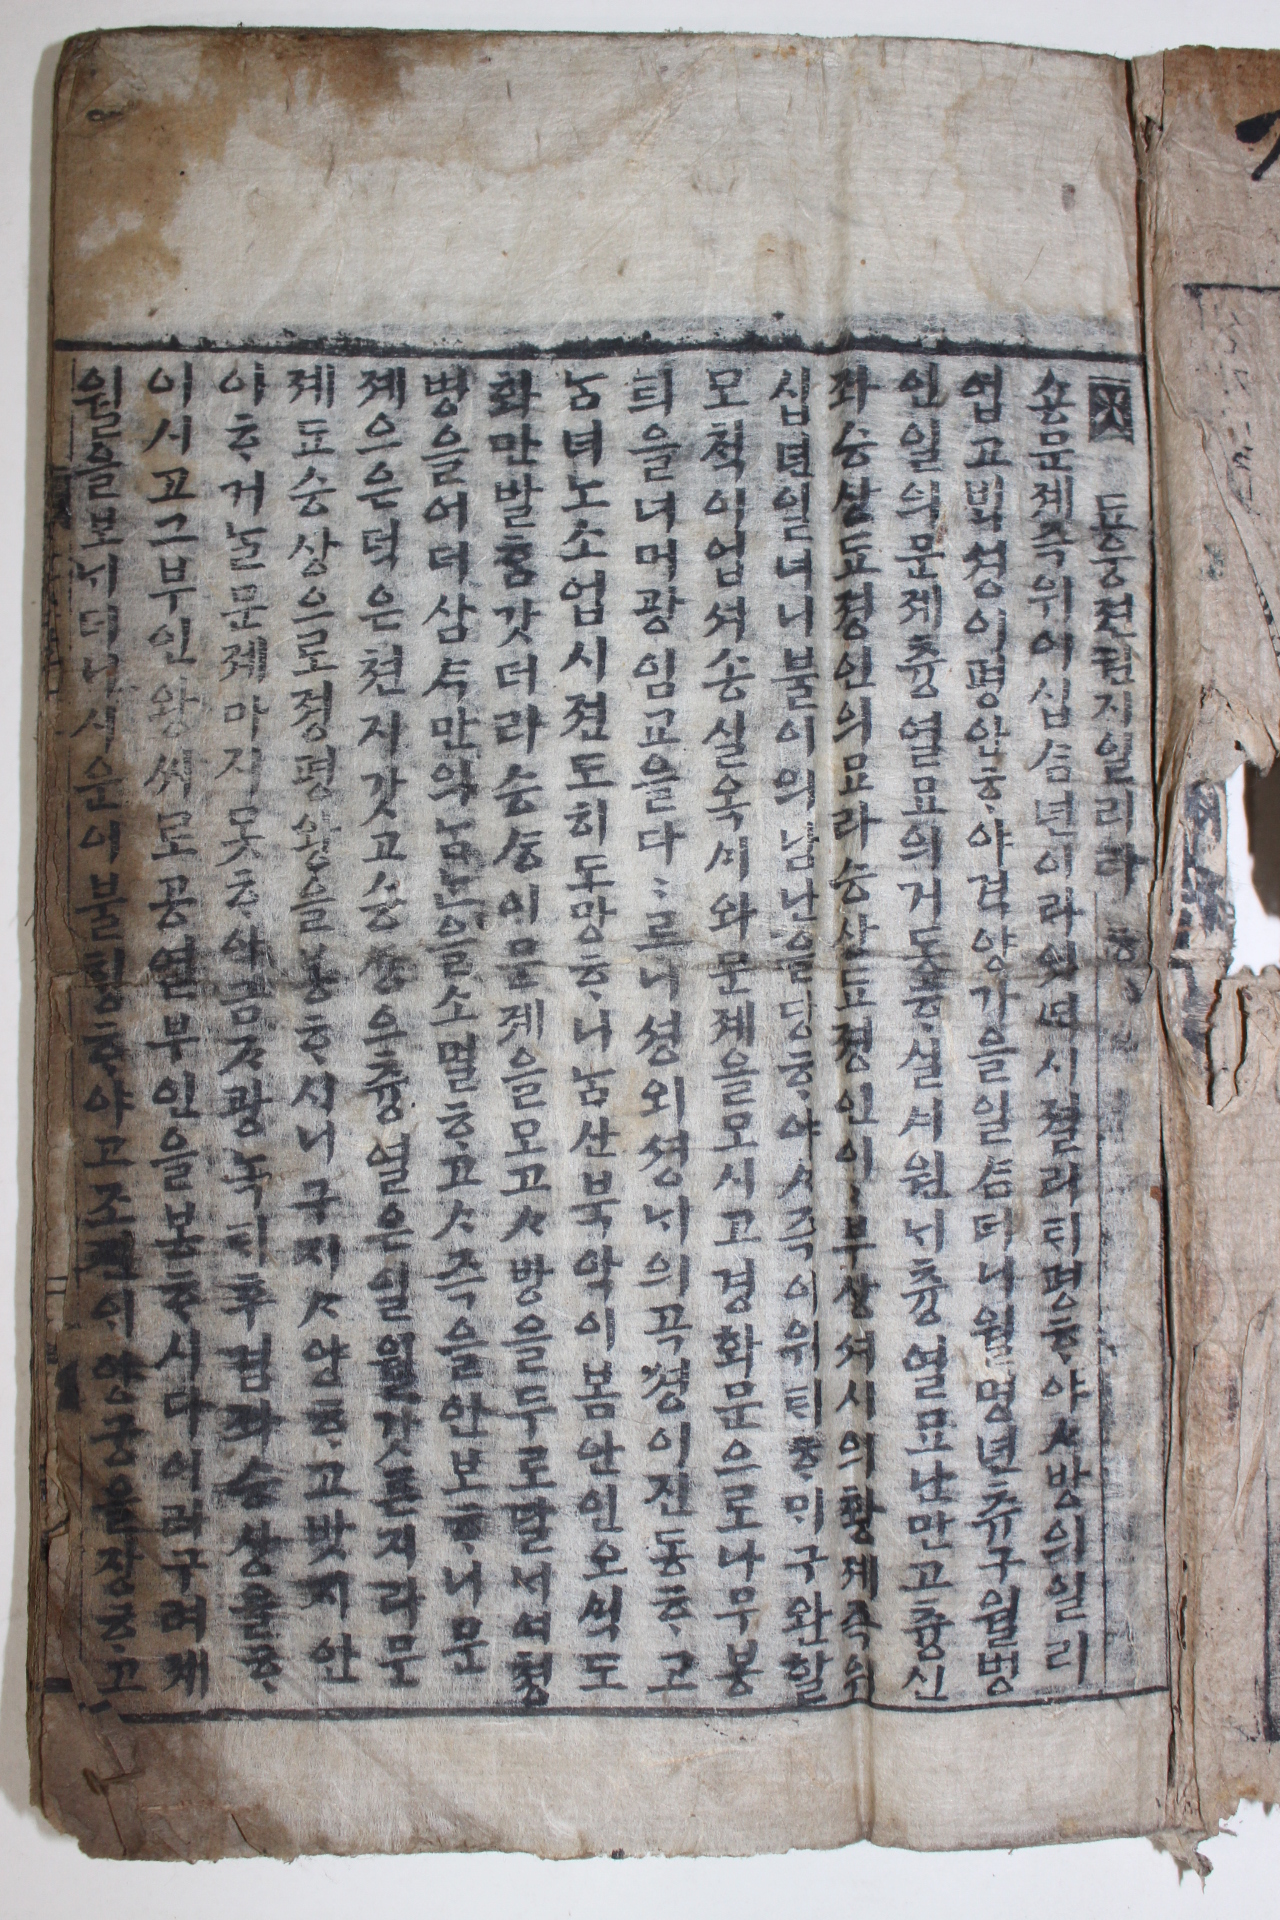 됴웅젼권지일리라
숑문졔즉위이십ᄉᆞᆷ년이라잇ᄯᆡ시졀리ᄐᆡ평ᄒᆞ야ᄉᆞ방의일리
업고ᄇᆡᆨ셩이평안ᄒᆞ야격양가을일ᄉᆞᆷ더니월명년츄구월병
인일의문졔츙열묘의거동ᄒᆞᆯᄉᆡ원ᄂᆡ츙열묘난만고츙신
좌승상됴졍인의묘라승상됴졍인이이부상셔시의황졔즉위
십년일너니불이의남난을당ᄒᆞ야ᄉᆞ즉이위ᄐᆡᄒᆞᄆᆡ구완할
모칙이업셔송실옥ᄉᆡ와문졔을모시고경화문으로나무봉
ᄐᆡ을너머광임교을다다르니셩외셩ᄂᆡ의곡셩이진동ᄒᆞ고
남녀노소업시젼도히도망ᄒᆞ니남산북악이봄안인오ᄉᆡᆨ도
화만발ᄒᆞᆷ갓더라승ᄉᆞᆼ이문졔을모고ᄉᆞ방을두로달ᄂᆡ여쳥
병을어더삼ᄉᆞ만의남난을소멸ᄒᆞ고ᄉᆞ즉을안보ᄒᆞ니문
졔으은덕은쳔지갓고승ᄉᆞᆼ으츙열은일월갓튼지라문
졔됴승상으로졍평왕을봉ᄒᆞ시니구지ᄉᆞ양ᄒᆞ고밧지안
이ᄒᆞ거놀문졔마지못ᄒᆞ야금ᄌᆞ광녹ᄐᆡ후겸좌승상을ᄒᆞ
이시고그부인왕씨로공열부인을봉ᄒᆞ시다이리구러셰
월을보ᄂᆡ더니시운이불ᄒᆡᆼᄒᆞ야고조관의양궁을장ᄒᆞ고